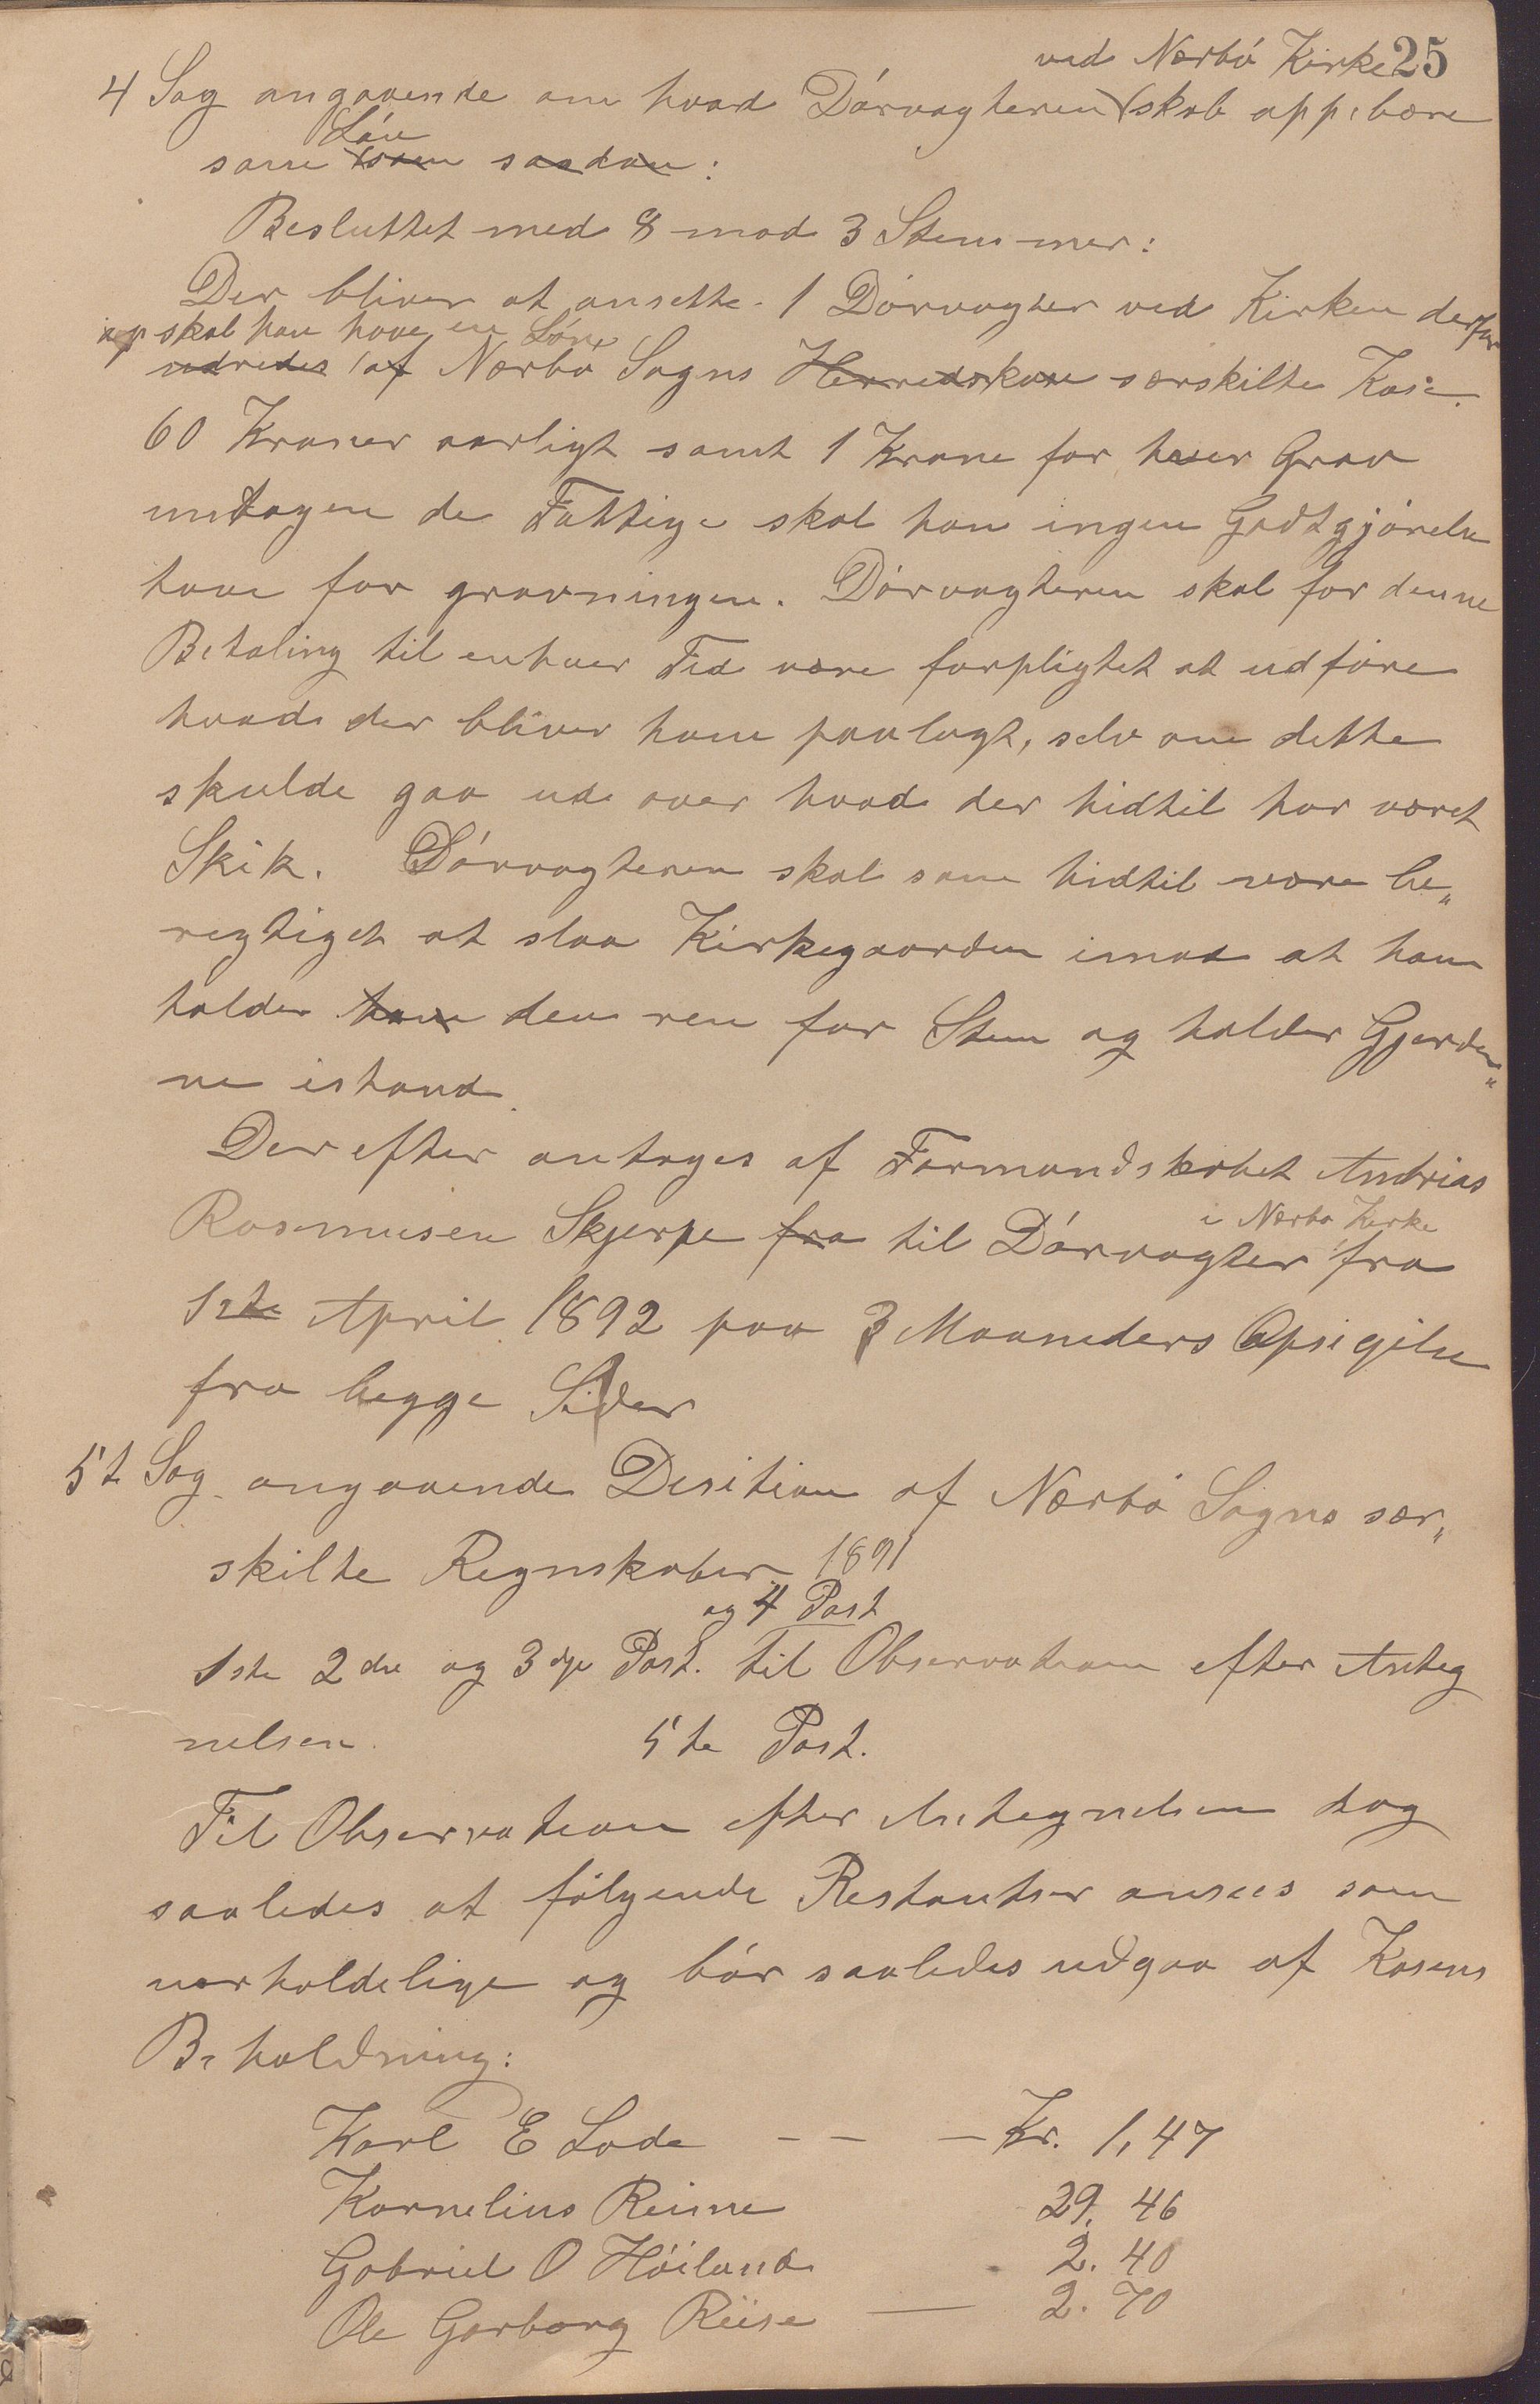 ved Nærbö Kirke 25
4 Sag angaaende om hvad Dörvagteren skal oppebære
Lön
som som saadan:
Besluttet med 8 mod 3 Stemmer:
Der bliver at ansette 1 Dörvagter ved Kirken derfor
skal han have en Lön
udredes af Nærbö Sogns Herredskase særskilte Kase
60 Kroner aarligt samt 1 Krone for hver Grav
untagen de Fattige skal han ingen Godtgjörelse
have for gravningen. Dörvagteren skal for denne
Betaling til enhver Tid være forpligtet at udföre
hvad der bliver ham paalagt, selv om dette
skulde gaa ud over hvad der hidtil har været
Skik. Dörvagteren skal som hidtil være be„
regtiget at slaa Kirkegaarden imod at han
holder ham den ren for Sten og holder Gjerder„
ne istand.
Derefter antoges af Formandskabet Andrias
i Nærbö Kirke
Rasmusen Skjerpe fra til Dörvagter fra
1ste April 1892 paa 3 Maaneders Opsigelse
fra begge Sider
5t Sag angaaende Desition af Nærbö Sogns sær„
skilte Regnskaber 1891
og 4 Post
1ste 2den og 3dje Post. til Observation efter Anteg
nelsen. 5te Post.
Til Observation efter Antegnelsen dog
saaledes at fölgende Restantser ansees som
uerholdelige og bör saaledes udgaa af Kasens
Beholdning:
Karl E Lode - - - Kr. 1,47
Kornelius Reime 29. 46
Gabriel O Höiland 2. 40
Ole Garborg Riise — 2. 70